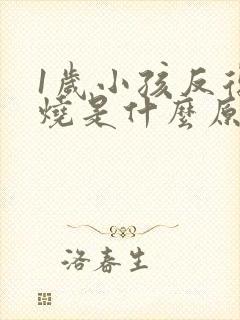 1歲小孩反
燒是什麼原
洛春生